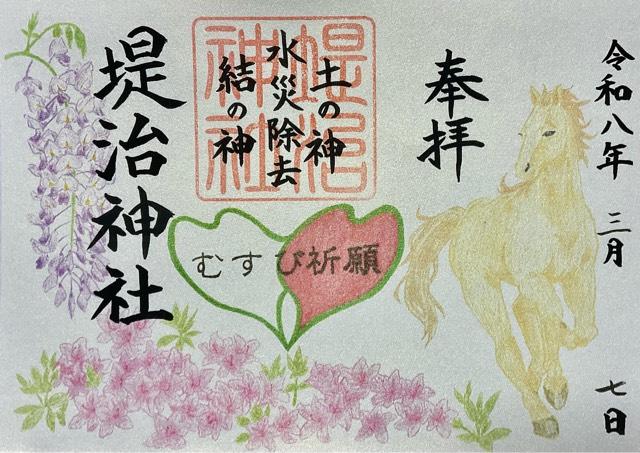 令和八年 三月 七日
奉拝
土の神
水災除去
結の神
堤治神社
堤治神社
むすび祈願